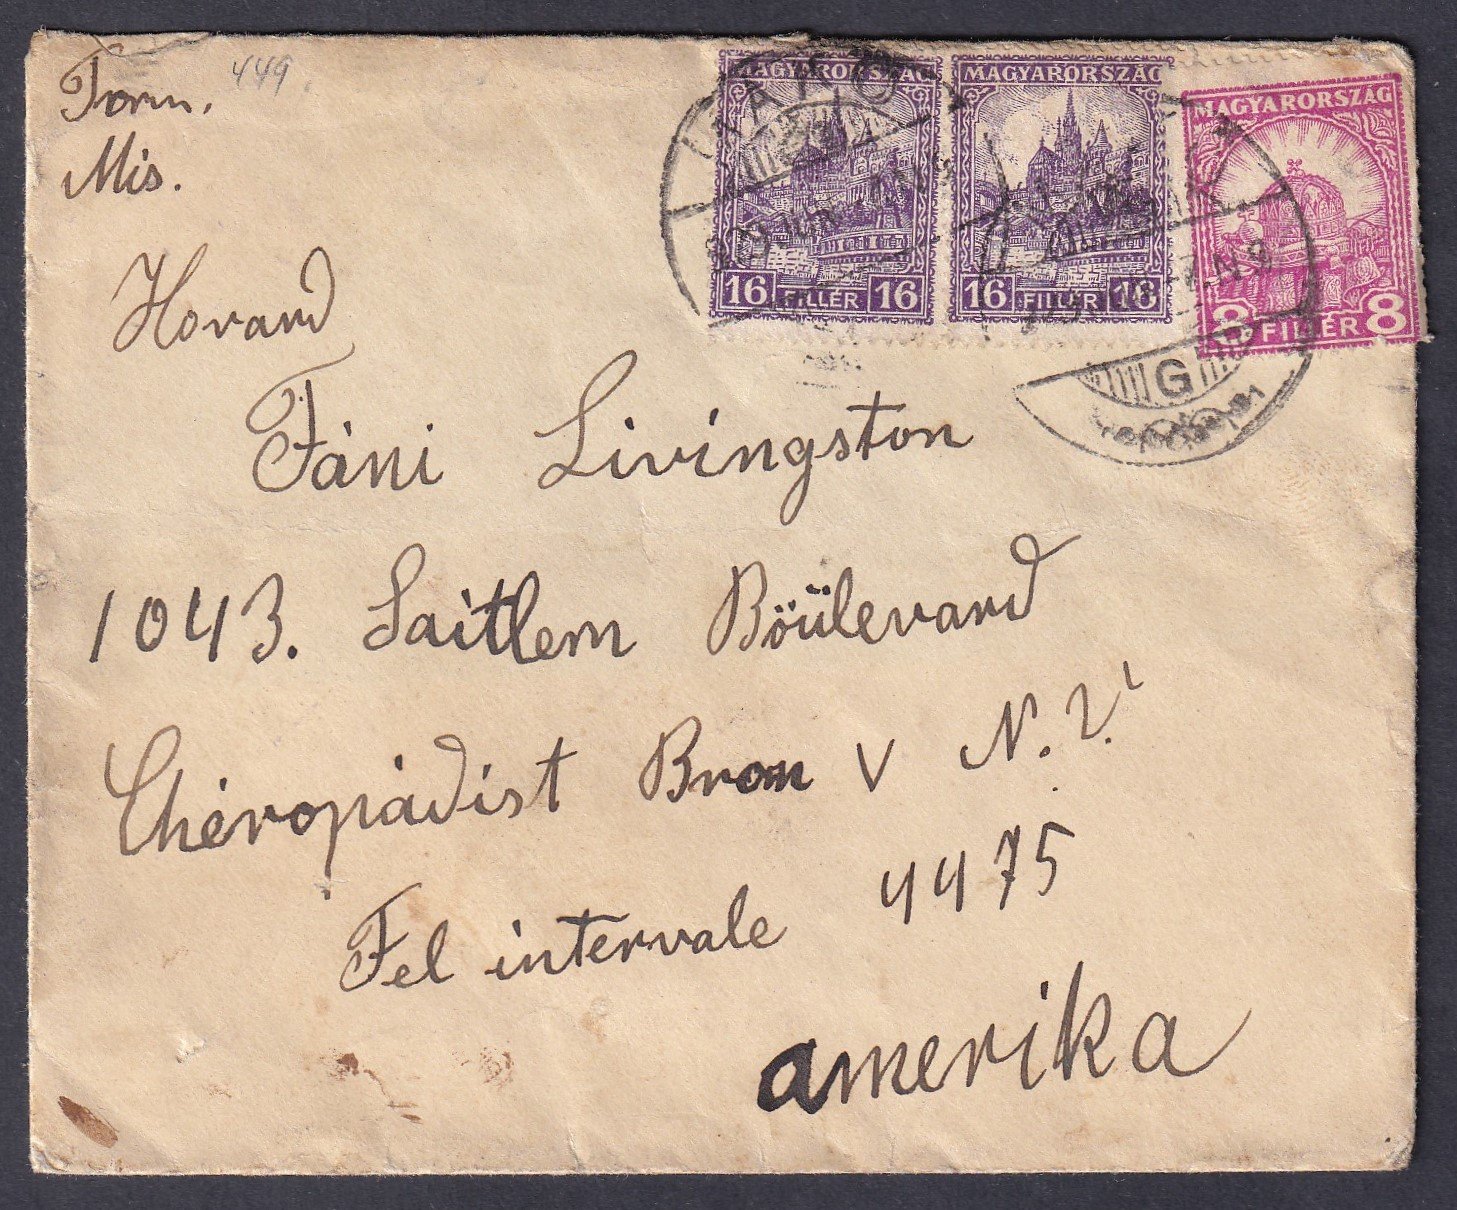 449
Torn.
Mis.
MAGYARORSZÁG MAGYARORSZÁG MAGYARORSZÁG
16 FILLÉR 16 16 FILLÉR 16 8 FILLÉR 8
G
Hovard
Fáni Livingston
1043. Saitlem Böülevard
Chéropádist Bron V N.Y.
Fel intervale 4475
amerika